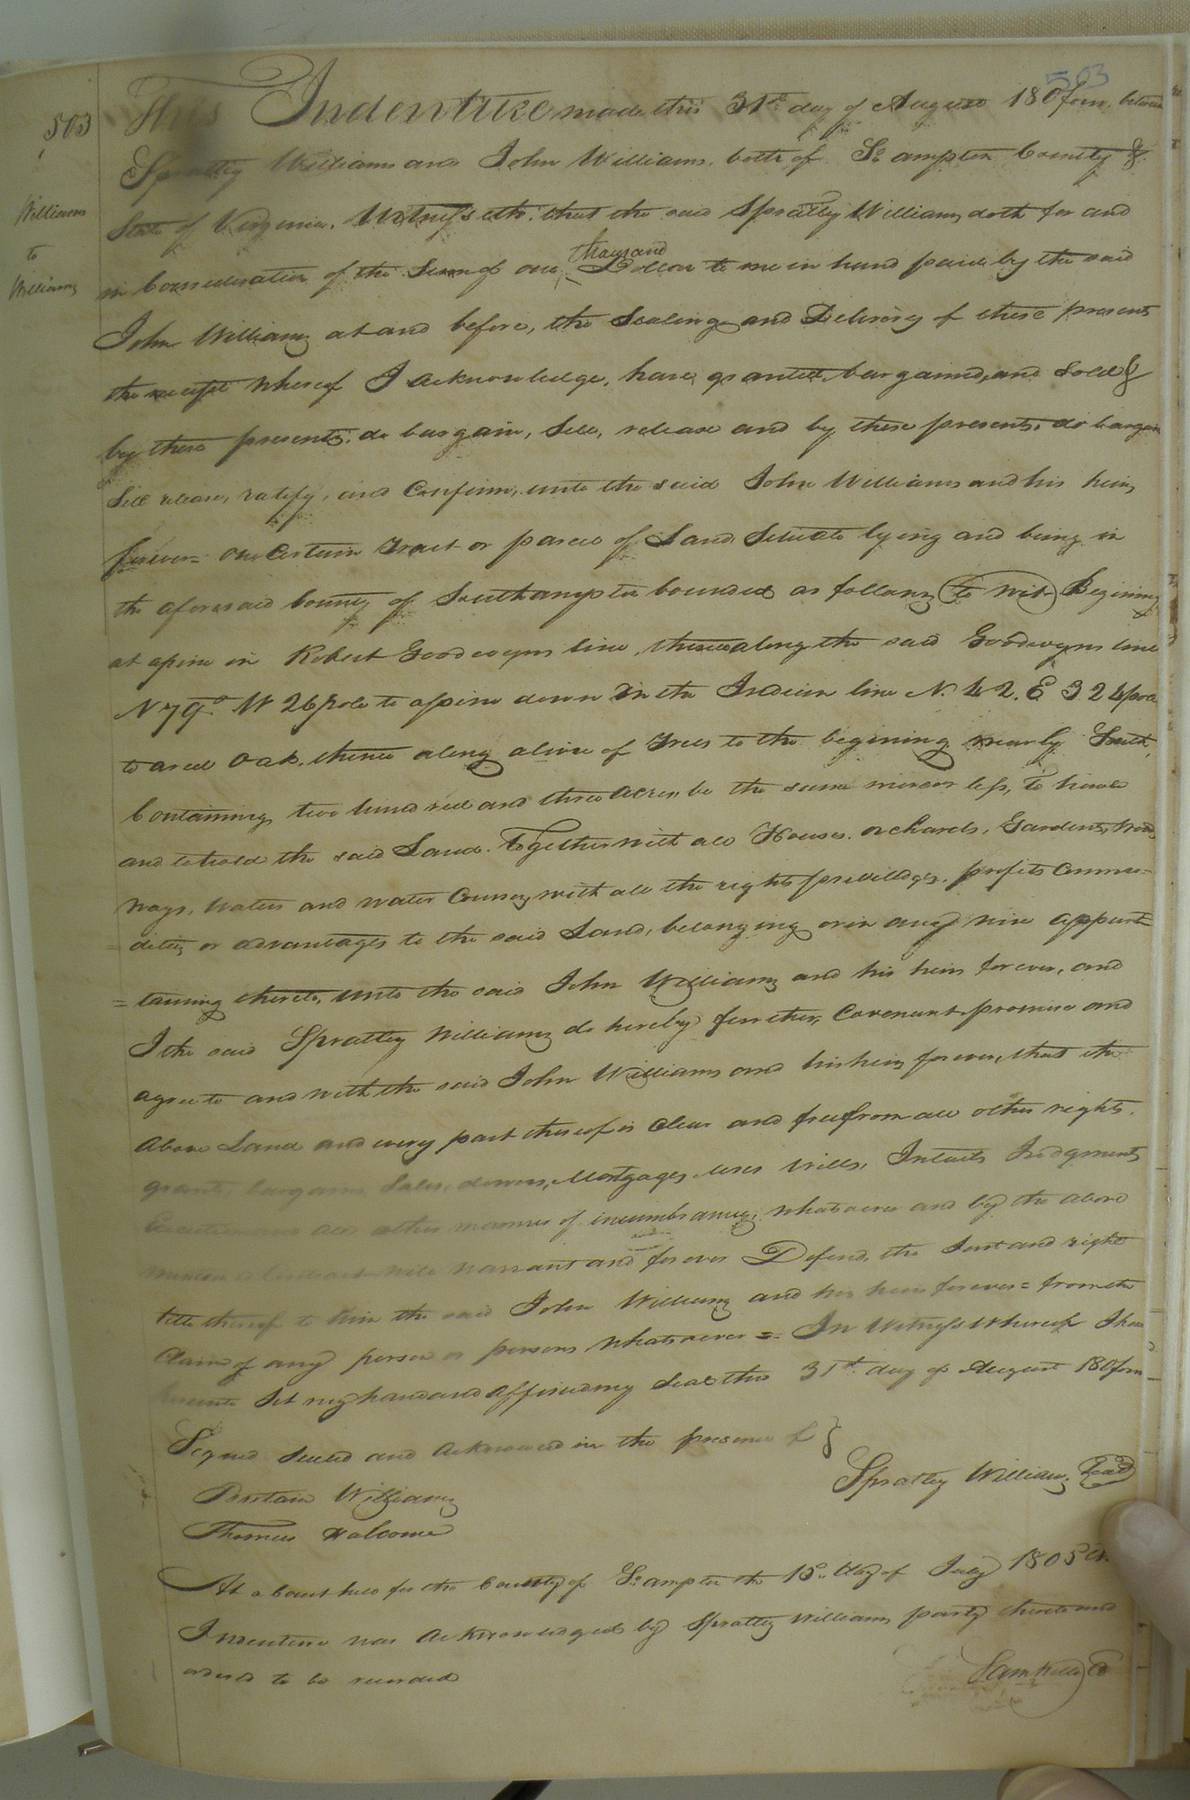 503
503
Williams
to
Williams
This Indenture made this 31st day of August 180four between
Spratley Williams and John Williams, both of So. ampton County &
State of Virginia. Witnesseth: that the said Spratley Williams doth for and
in Consideration of the Sum of one thousand Dollars to me in hand paid by the said
John Williams at and before, the Sealing and Delivery of these presents
the receipt whereof I acknowledge, have granted, bargained, and Sold &
by these presents, do bargain, Sell, release and by these presents, do bargain
Sell release, ratify, and Confirm, unto the said John Williams and his heirs
forever= one Certain Tract or parcel of Land Situate lying and being in
the aforesaid County of Southampton bounded as follows (to wit) Begining
at a pine in Robert Goodwyns line, thence along the said Goodwyns line
N 79° W 26 pole to a pine down in the Indian line N. 42. E 324 pole
to a red Oak. thence along a line of Trees to the begining nearly South,
Containing two hundred and three Acres, be the same more or less, To have
and to hold the said Land. Together with all Houses. orchards, Gardens, Woods
Ways, Waters and water Courses, with all the rights priviledges. profits Commo=
=dities or advantages to the said Land, belonging or in any wise appurt
=taining thereto, unto the said John Williams and his heirs forever, and
I the said Spratley Williams do hereby further, Covenant promise and
agree to and with the said John Williams and his heirs forever, that the
above Land and every part thereof is Clear and free from all other rights.
grants, bargains Sales, dowers, Mortgages uses Wills, Intails Judgments
Executions and all other manner of incumbrances; whatsoever and by the above
Contract will warrant and forever Defend, the Just and right
title thereof to him the said John Williams and his heirs forever= from the
Claim of any person or persons whatsoever = In Witness Whereof I have
hereunto Set my hand and affixed my Seal this 31st day of August 180four
Signed Sealed and Acknowed in the presence of }
Spratley Williams Seal
Britain Williams
Thomas Holcome
At a Court held for the County of So. ampton the 15th day of July 1805
Indenture was Acknowledged by Spratley Williams party thereto and
orderd to be recorded
Sam Kello